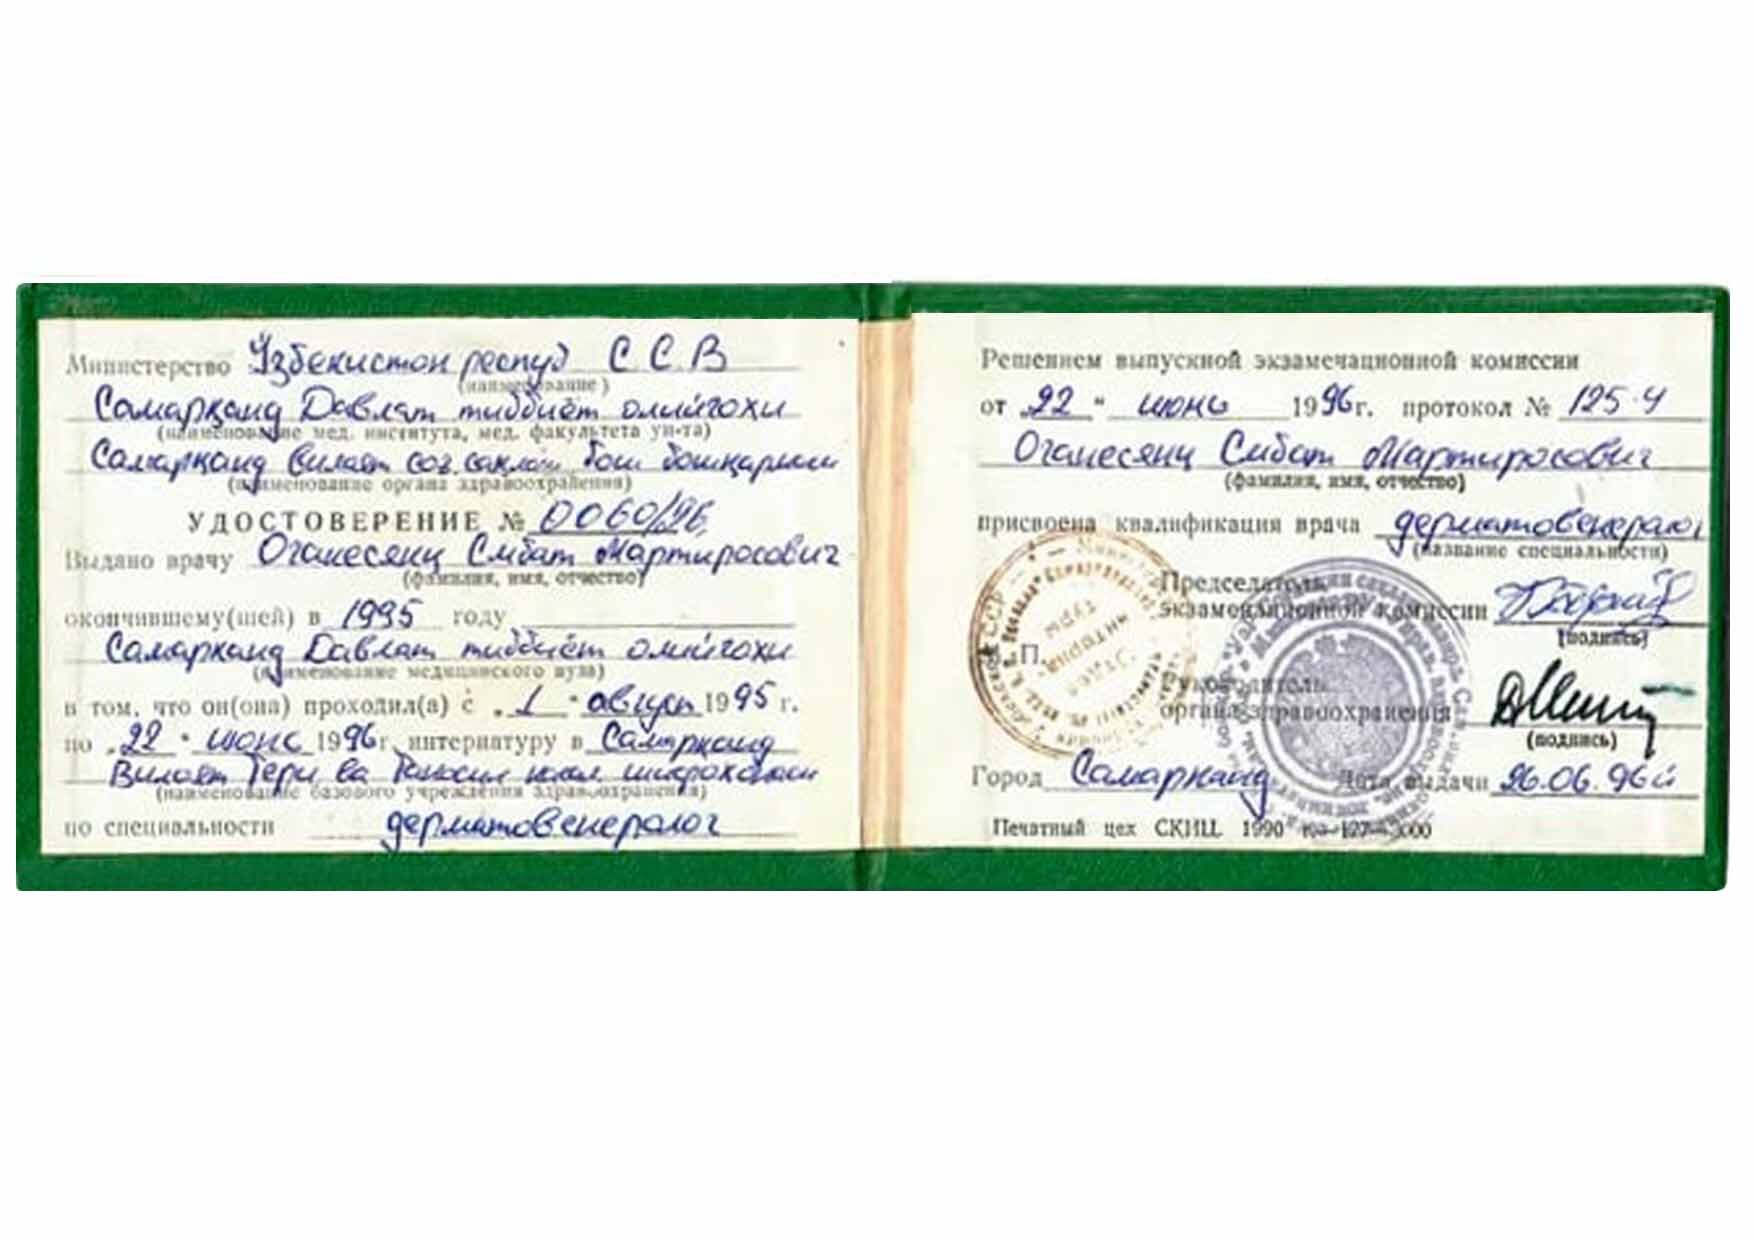 Министерство Узбекистон респуб С.С.В
(наименование)
Самарқанд Давлат тиббиёт олийгохи
(наименование мед. института, мед. факультета ун-та)
Самарқанд вилоят соғ.сақлаш бош бошқармаси
(наименование органа здравоохранения)
УДОСТОВЕРЕНИЕ № 0060/96
Выдано врачу Оганесянц Смбат Мартиросович
(фамилия, имя, отчество)
окончившему(шей) в 1995 году
Самарканд Давлат тиббиёт олийгохи
(наименование медицинского вуза)
в том, что он(она) проходил(а) с „1" август 1995 г.
по „22" июнь 1996 г. интернатуру в Самарканд
Вилоят Тери ва Таносил касал шифохонаси
(наименование базового учреждения здравоохранения)
по специальности дерматовенеролог
Решением выпускной экзаменационной комиссии
от „22" июнь 1996 г. протокол № 125-Ч
Оганесянц Смбат Мартиросович
(фамилия, имя, отчество)
присвоена квалификация врача дерматовенеролог
(название специальности)
Председатель
экзаменационной комиссии
(подпись)
М. П.
Руководитель
органа здравоохранения
(подпись)
Город Самарканд Дата выдачи 26.06.96й
Печатный цех СКИЦ 1990